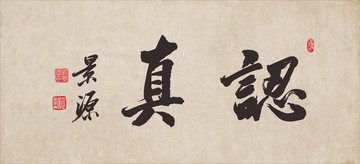 認真
景源